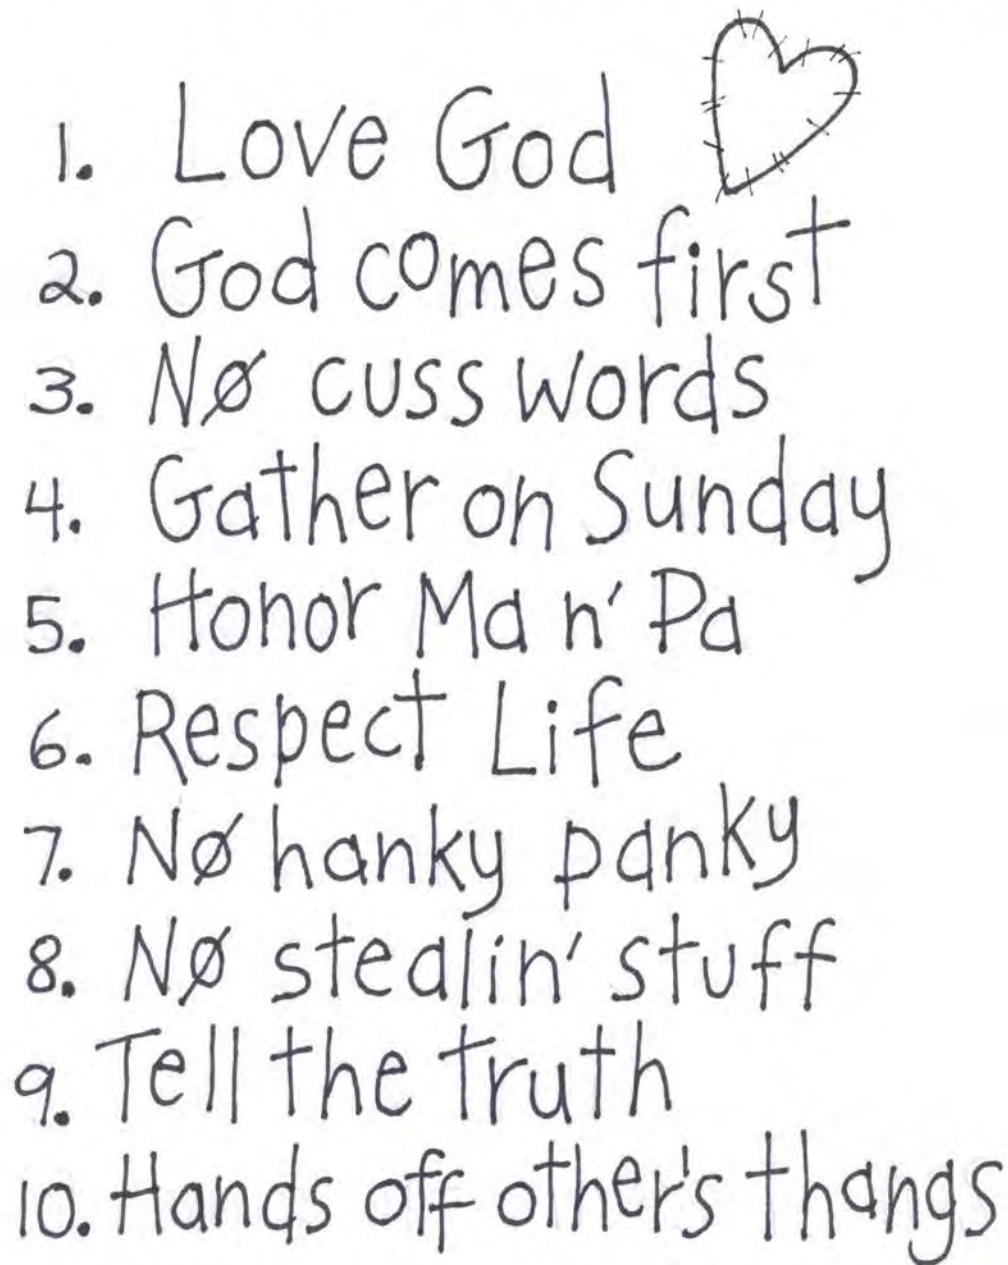 1. Love God
2. God comes first
3. NØ cuss words
4. Gather on Sunday
5. Honor Ma n' Pa
6. Respect Life
7. NØ hanky panky
8. NØ stealin' stuff
9. Tell the truth
10. Hands off other's thangs